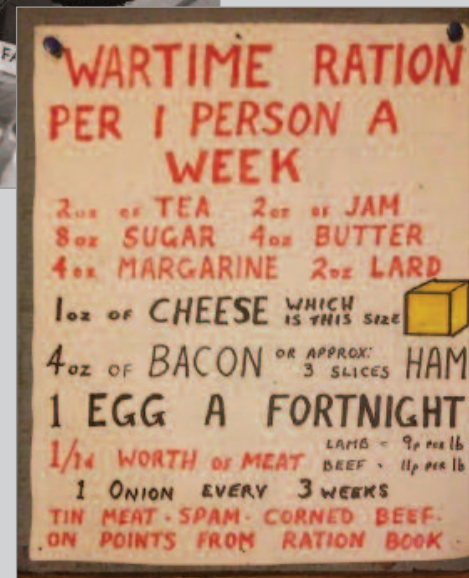 FA
WARTIME RATION
PER 1 PERSON A
WEEK
2oz of TEA 2oz of JAM
8oz SUGAR 4oz BUTTER
4oz MARGARINE 2oz LARD
1oz OF CHEESE WHICH IS THIS SIZE
4oz OF BACON OR APPROX: 3 SLICES HAM
1 EGG A FORTNIGHT
WORTH OF MEAT LAMB - 9p per lb
BEEF - 11p per lb
1 ONION EVERY 3 WEEKS
TIN MEAT - SPAM - CORNED BEEF -
ON POINTS FROM RATION BOOK